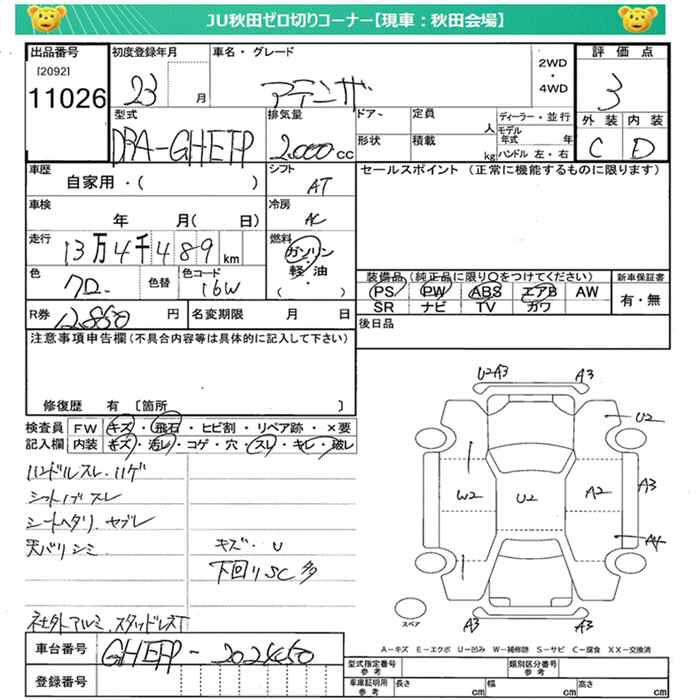 JU秋田ゼロ切りコーナー【現車：秋田会場】
出品番号
[2092]
11026
初度登録年月
23 月
車名・グレード
アテンザ
2WD
・
4WD
評価点
3
外装 内装
C D
型式
DBA-GHEFP
排気量
2.000 cc
ドア、
形状
定員 人
積載 kg
ディーラー・並行
モデル年式 年
ハンドル 左・右
車歴
自家用・( )
シフト
AT
セールスポイント (正常に機能するものに限ります)
車検
年 月( 日)
冷房
AC
走行
13万4千489 km
燃料
ガソリン
・
軽・油
( )
色
クロ
色替
色コード
16W
装備品 (純正品に限り○をつけてください)
PS PW ABS エアB AW
SR ナビ TV カワ
新車保証書
有・無
R券
12.850 円
名変期限 月 日
後日品
注意事項申告欄 (不具合内容等は具体的に記入して下さい)
修復歴 有 〔箇所 〕
検査員記入欄
FW キズ・飛石・ヒビ割・リペア跡・×要
内装 キズ・汚レ・コゲ・穴・スレ・キレ・破レ
ハンドルスレ.ハゲ
シフトノブスレ
シートヘタリ.ヤブレ
天バリシミ
キズ・U
下回りSC多
社外アルミ.スタッドレスT
U2A3 A3
U2
W2 U2 A2 A3
A4
A3 A3
スペア
A－キズ E－エクボ U－凹み W－補修跡 S－サビ C－腐食 XX－交換済
車台番号
GHEFP-
登録番号
型式指定番号
参考
類別区分番号
参考
車庫証明用
参考
長さ cm 幅 cm 高さ cm